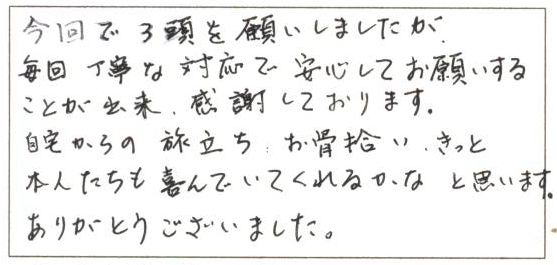 今回で3頭を願いしましたが
毎回丁寧な対応で安心してお願いする
ことが出来、感謝しております。
自宅からの旅立ち、お骨拾い、きっと
本人たちも喜んでいてくれるかな と思います。
ありがとうございました。